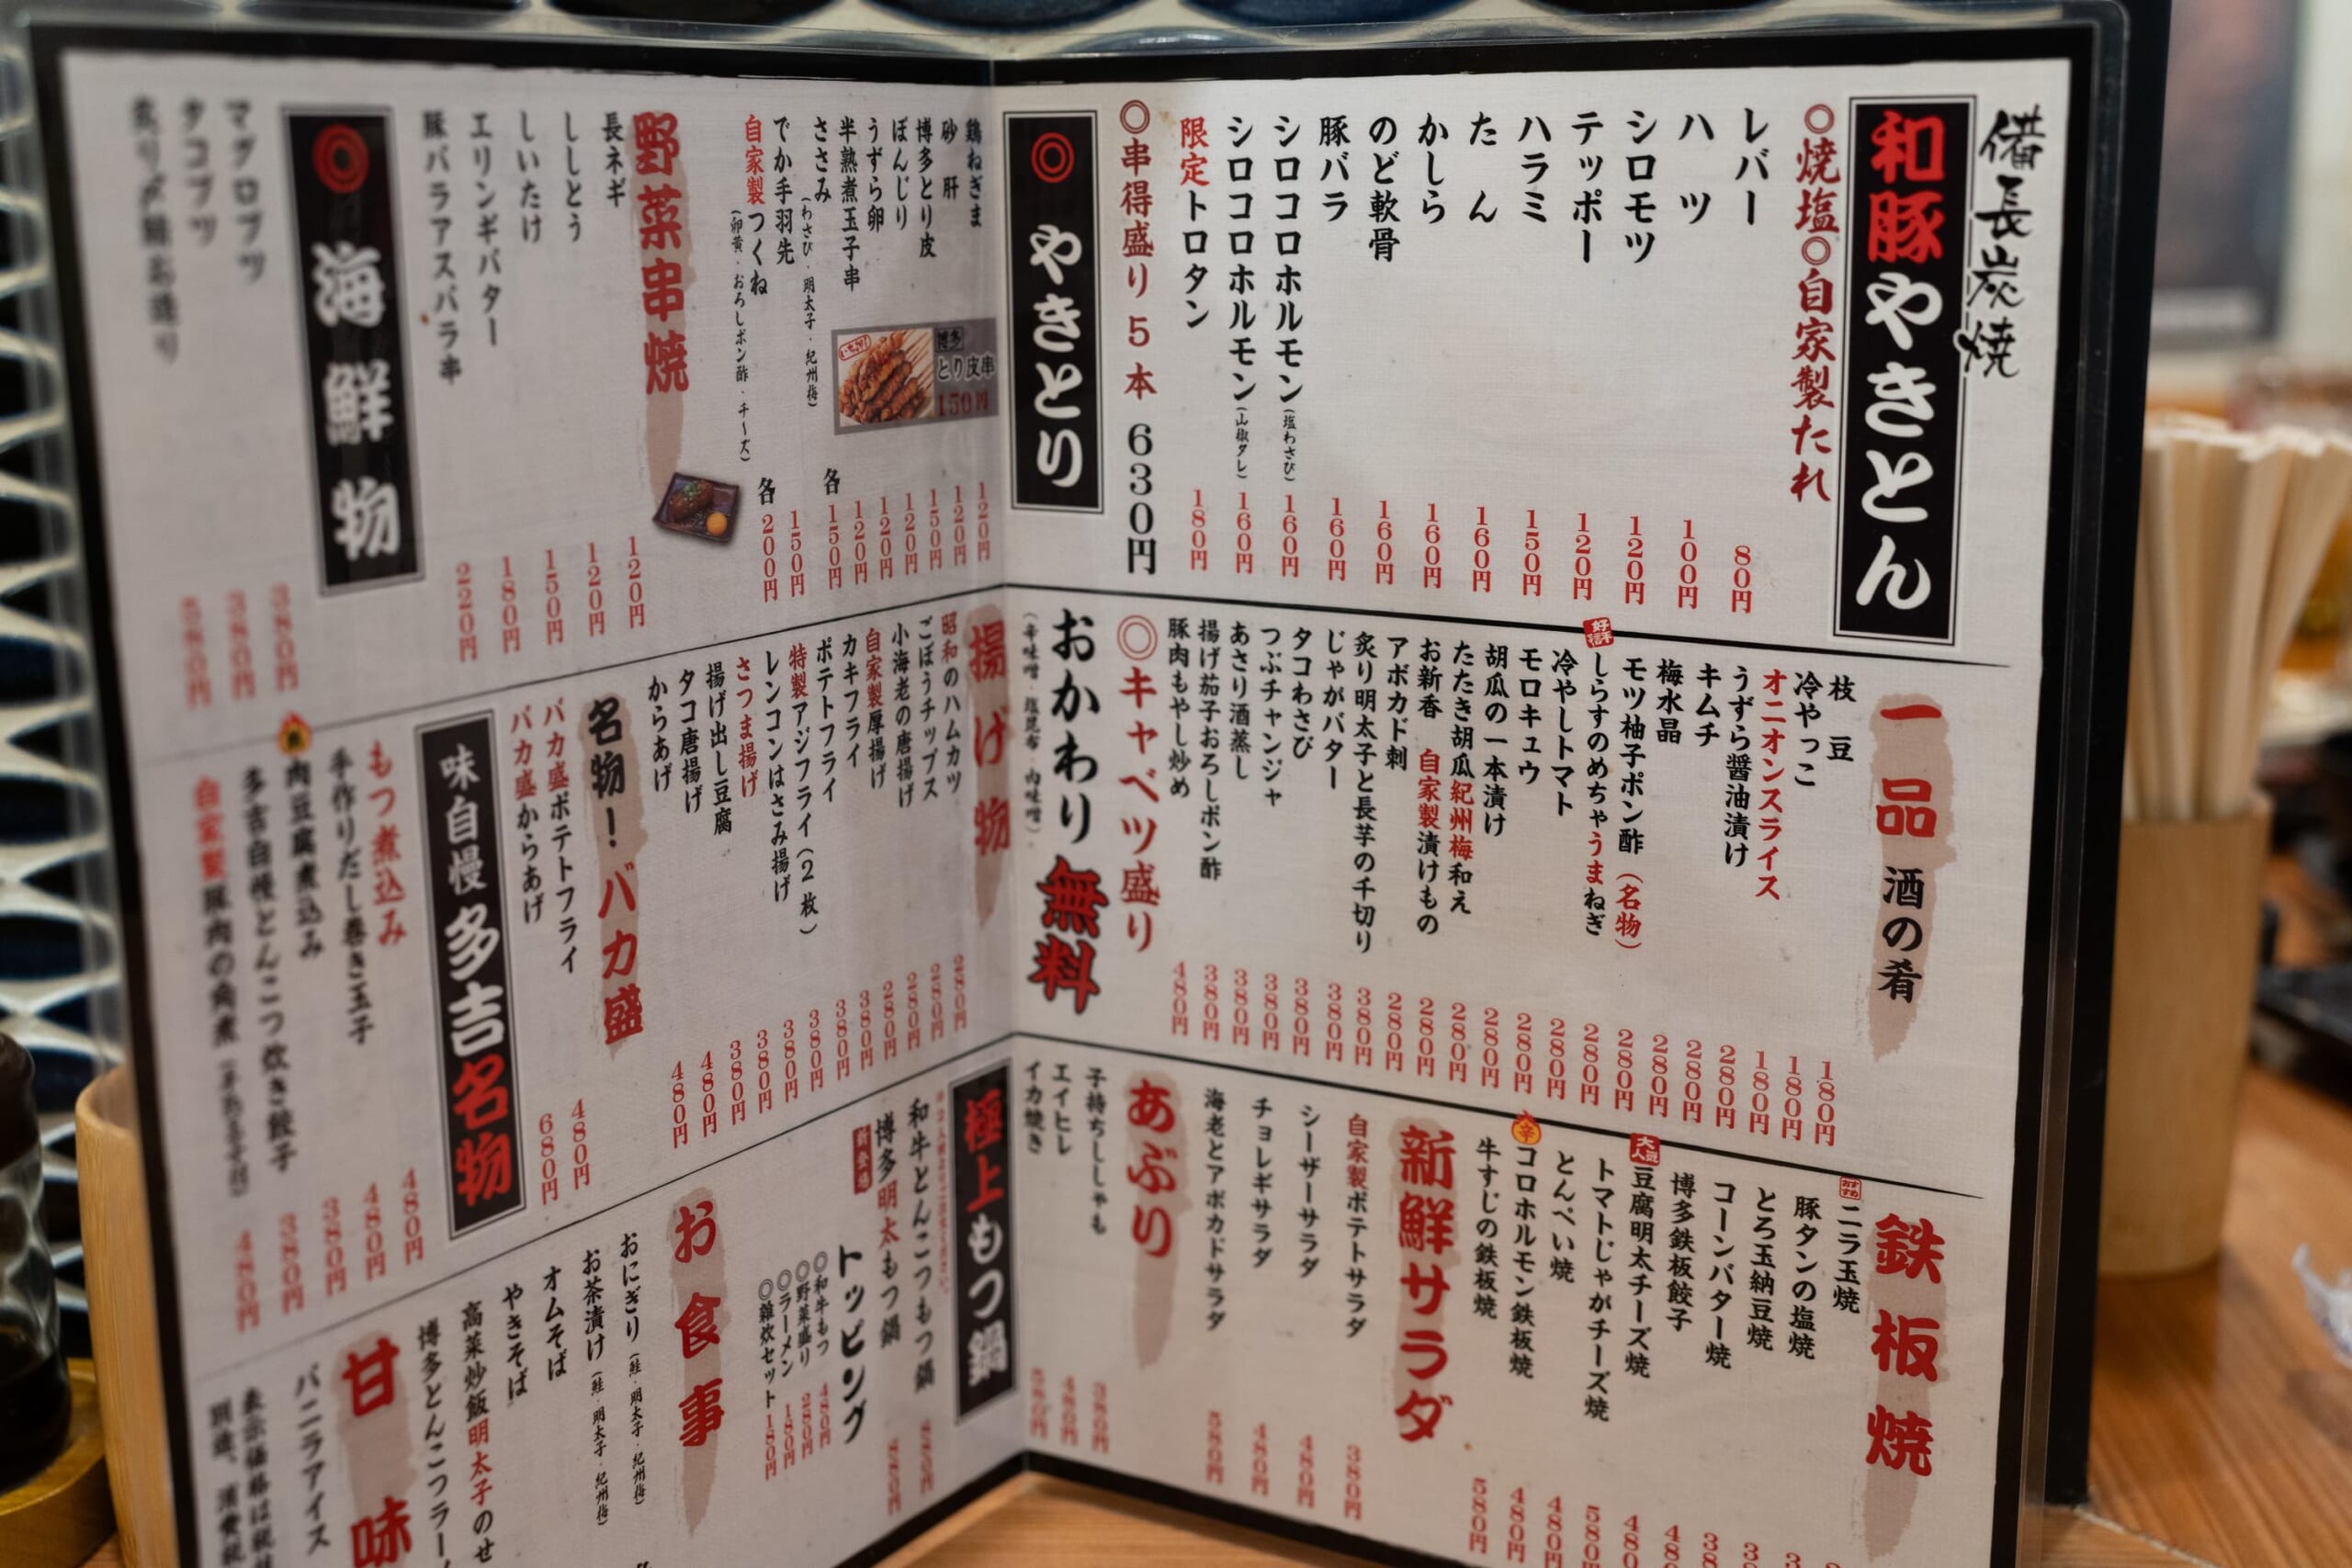 備長炭焼
和豚やきとん
◎焼塩◎自家製たれ
レバー 80円
ハツ 100円
シロモツ 120円
テッポー 120円
ハラミ 150円
たん 160円
かしら 160円
のど軟骨 160円
豚バラ 160円
シロコロホルモン(塩わさび) 160円
シロコロホルモン(山椒ダレ) 160円
限定トロタン 180円
◎串得盛り5本 630円
◎やきとり
鶏ねぎま 120円
砂肝 120円
博多とり皮 150円
ぼんじり 120円
うずら卵 120円
半熟煮玉子串 120円
ささみ 各150円
(わさび・明太子・紀州梅)
でか手羽先 150円
自家製つくね 各200円
(卵黄・おろしポン酢・チーズ)
博多
とり皮串
150円
野菜串焼
長ネギ 120円
ししとう 120円
しいたけ 150円
エリンギバター 180円
豚バラアスパラ串 220円
◎海鮮物
マグロブツ 380円
タコブツ 380円
580円
一品 酒の肴
枝豆 180円
冷やっこ 180円
オニオンスライス 180円
うずら醤油漬け 280円
キムチ 280円
梅水晶 280円
モツ柚子ポン酢(名物) 280円
好評
しらすのめちゃうまねぎ 280円
冷やしトマト 280円
モロキュウ 280円
胡瓜の一本漬け 280円
たたき胡瓜紀州梅和え 280円
お新香 自家製漬けもの 280円
アボカド刺 280円
炙り明太子と長芋の千切り 380円
じゃがバター 380円
タコわさび 380円
つぶチャンジャ 380円
あさり酒蒸し 380円
揚げ茄子おろしポン酢 380円
豚肉もやし炒め 480円
◎キャベツ盛り
おかわり無料
(辛味噌・塩昆布・肉味噌)
揚げ物
昭和のハムカツ 280円
ごぼうチップス 280円
小海老の唐揚げ 280円
自家製厚揚げ 280円
カキフライ 380円
ポテトフライ 380円
特製アジフライ(2枚) 380円
レンコンはさみ揚げ 380円
さつま揚げ 380円
揚げ出し豆腐 380円
タコ唐揚げ 480円
からあげ 480円
名物!バカ盛
バカ盛ポテトフライ 480円
バカ盛からあげ 680円
味自慢多吉名物
もつ煮込み 480円
手作りだし巻き玉子 480円
肉豆腐煮込み 380円
多吉自慢とんこつ炊き餃子 380円
自家製豚肉の角煮 480円
鉄板焼
おすすめ
ニラ玉焼
豚タンの塩焼
とろ玉納豆焼
コーンバター焼
博多鉄板餃子
大人気
豆腐明太チーズ焼
トマトじゃがチーズ焼 580円
とんぺい焼 480円
辛
コロホルモン鉄板焼 480円
牛すじの鉄板焼 580円
新鮮サラダ
自家製ポテトサラダ 380円
シーザーサラダ 480円
チョレギサラダ 480円
海老とアボカドサラダ 580円
あぶり
子持ちししゃも 380円
エイヒレ 480円
イカ焼き 580円
極上もつ鍋
和牛とんこつもつ鍋 880円
博多明太もつ鍋 880円
新登場
トッピング
◎和牛もつ 480円
◎野菜盛り 280円
◎ラーメン 180円
◎雑炊セット 180円
お食事
おにぎり(鮭・明太子・紀州梅)
お茶漬け(鮭・明太子・紀州梅)
オムそば
やきそば
高菜炒飯明太子のせ
博多とんこつラー
甘味
バニラアイス
表示価格は税
別途、消費税